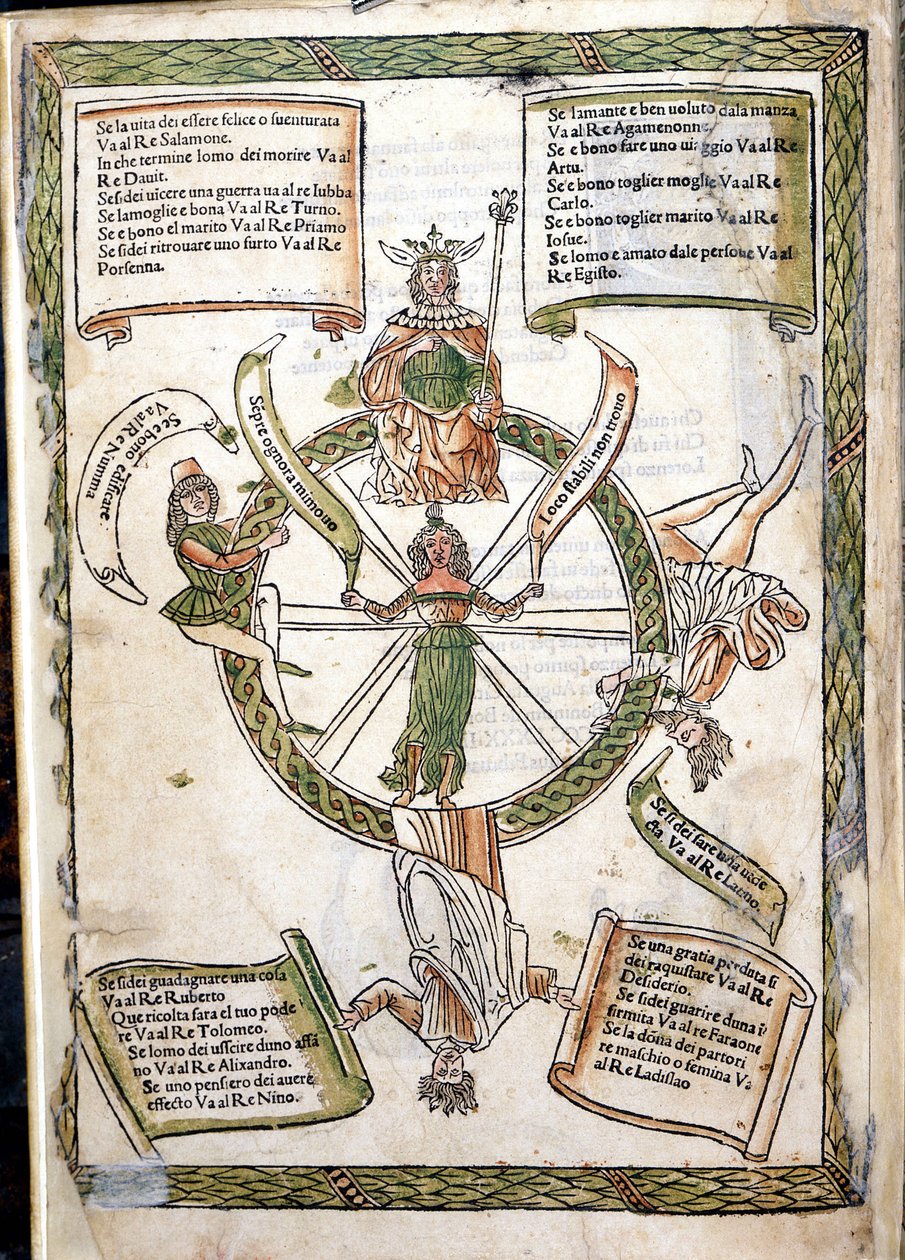 Se la uita dei essere felice o suenturata
Va al Re Salamone.
In che termine lomo dei morire Va al
Re Dauit.
Se si dei uicere una guerra ua al re Iubba
Se lamoglie e bona Va al Re Turno.
Se e bono el marito Va al Re Priamo
Se si dei ritrouare uno furto Va al Re
Porsenna.
Se lamante e ben uoluto dala manza
Va al Re Agamenonne.
Se e bono fare uno uiaggio Va al Re
Artu.
Se e bono toglier moglie Va al Re
Carlo.
Se e bono toglier marito Va al Re
Iosue.
Se lomo e amato dale persone Va al
Re Egisto.
Se e bono edificare
Va al Re Numma
Sēpre ognora mi mouo
Loco stabili non trouo
Se si dei fare una
cta. Va al Re
Se si dei guadagnare una cosa
Va al Re Ruberto
Que ricolta sara el tuo pode
re Va al Re Tolomeo.
Se lomo dei usscire duno affā
no Va al Re Alixandro.
Se uno pensiero dei auere
effecto Va al Re Nino.
Se una gratia perduta si
dei raquistare Va al Re
Desiderio.
Se si dei guarire duna ī
firmita Va al re Faraone
Se la dōna dei partori
re maschio o femina Va
al Re Ladislao